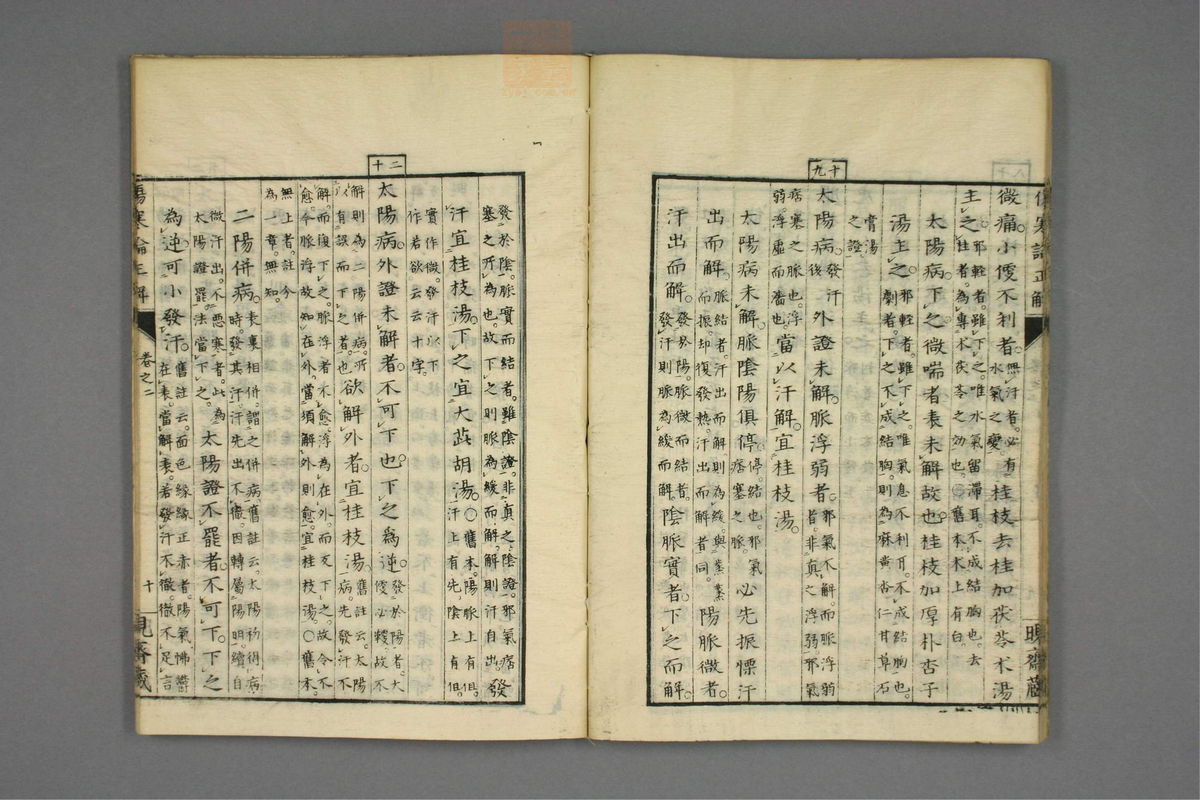 傷寒論正解
微痛。小便不利者。無汗者。必有水氣之變。桂枝去桂加茯苓朮湯
主之。邪輕者。雖下之。唯水氣留滯耳。不成結胸也。去桂者。為專朮茯苓之効也。○舊本。朮上有白。
太陽病。下之微喘者。表未解故也。桂枝加厚朴杏子
湯主之。邪輕者。雖下之。唯氣息不利耳。不成結胸也。劇者。下之不成結胸。則為麻黃杏仁甘草石
膏湯之證。
十九
太陽病。發汗後外證未解。脈浮弱者。邪氣不解。而脈浮弱皆。非真之浮弱。邪氣
痞塞之脈也。浮弱。浮虛而濇也。當以汗解。宜桂枝湯。
太陽病未解。脈陰陽俱停。停。結也。邪氣痞塞之脈。必先振慄汗
出而解。脈結者。汗出而解。則為緩。與蒸蒸而振。却復發熱。汗出而解者同。陽脈微者。
汗出而解。發於陽。脈微而結者。發汗則脈為緩而解。陰脈實者。下之而解。
發於陰。脈實而結者。雖陰證。非真之陰證。邪氣痞塞之所為也。故下之則脈為緩而解。解則汗自出。發
汗宜桂枝湯。下之宜大茈胡湯。○舊本。陽脈上有但。汗上有先。陰上有但。
實作微。發汗以下作若欲云云十字。
二十
太陽病。外證未解者。不可下也。下之為逆。發於陽者。大便必鞕。故不
解則為二陽併病。所以有誤而下之者也。欲解外者。宜桂枝湯。舊註云。太陽病。先發汗不
解。而復下之。脈浮者不愈。浮為在外。而反下之。故令不愈。今脈浮。故知在外。當須解外則愈。宜桂枝湯。○舊本。
無上者註。今為一章。無知。
二陽併病。表裏相併。謂之併病。舊註云。太陽初得病時。發其汗。汗先出不徹。因轉屬陽明。續自
微汗出。不惡寒者。此為太陽證罷。法當下之。太陽證不罷者。不可下。下之
為逆。可小發汗。舊註云。面色緣緣正赤者。陽氣怫鬱在表。當解表。若發汗不徹。徹不足言
傷寒論正解
卷之二
十